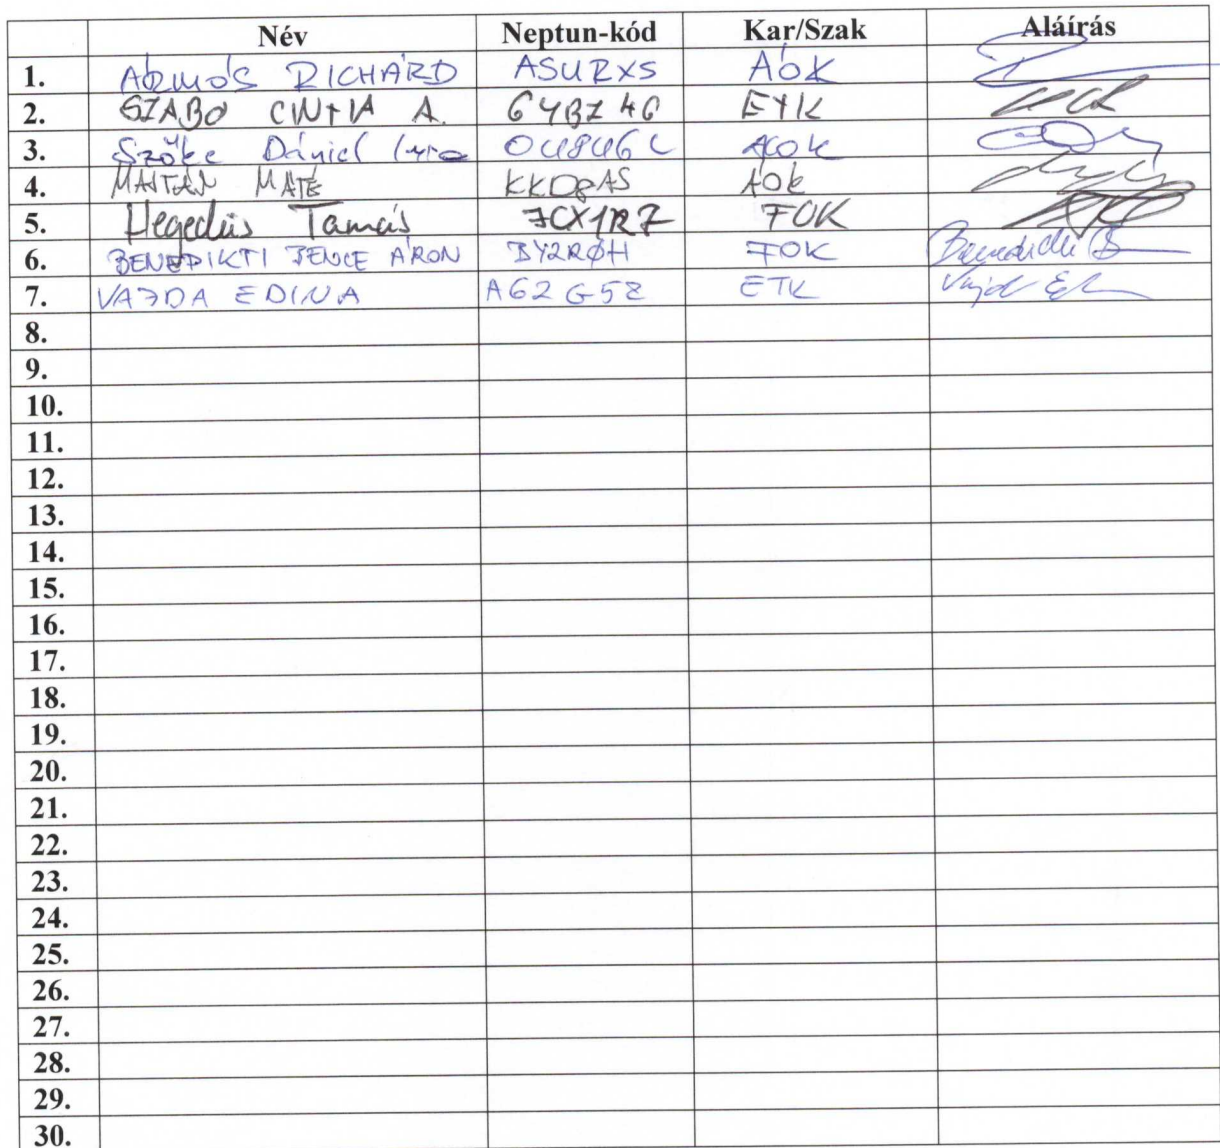 Név Neptun-kód Kar/Szak Aláírás
1. RICHÁRD ASURXS ÁOK
2. SZABÓ CINTIA A. G4BZ46 ETK
3. Szőke Dániel ÁOK
4. MAJTÁN MÁTÉ KKD8AS ÁOK
5. Hegedűs Tamás JCX1R7 FOK
6. BENEDIKTI BENCE ÁRON BY2RØH FOK
7. VAJDA EDINA A62G5Z ETK
8.
9.
10.
11.
12.
13.
14.
15.
16.
17.
18.
19.
20.
21.
22.
23.
24.
25.
26.
27.
28.
29.
30.